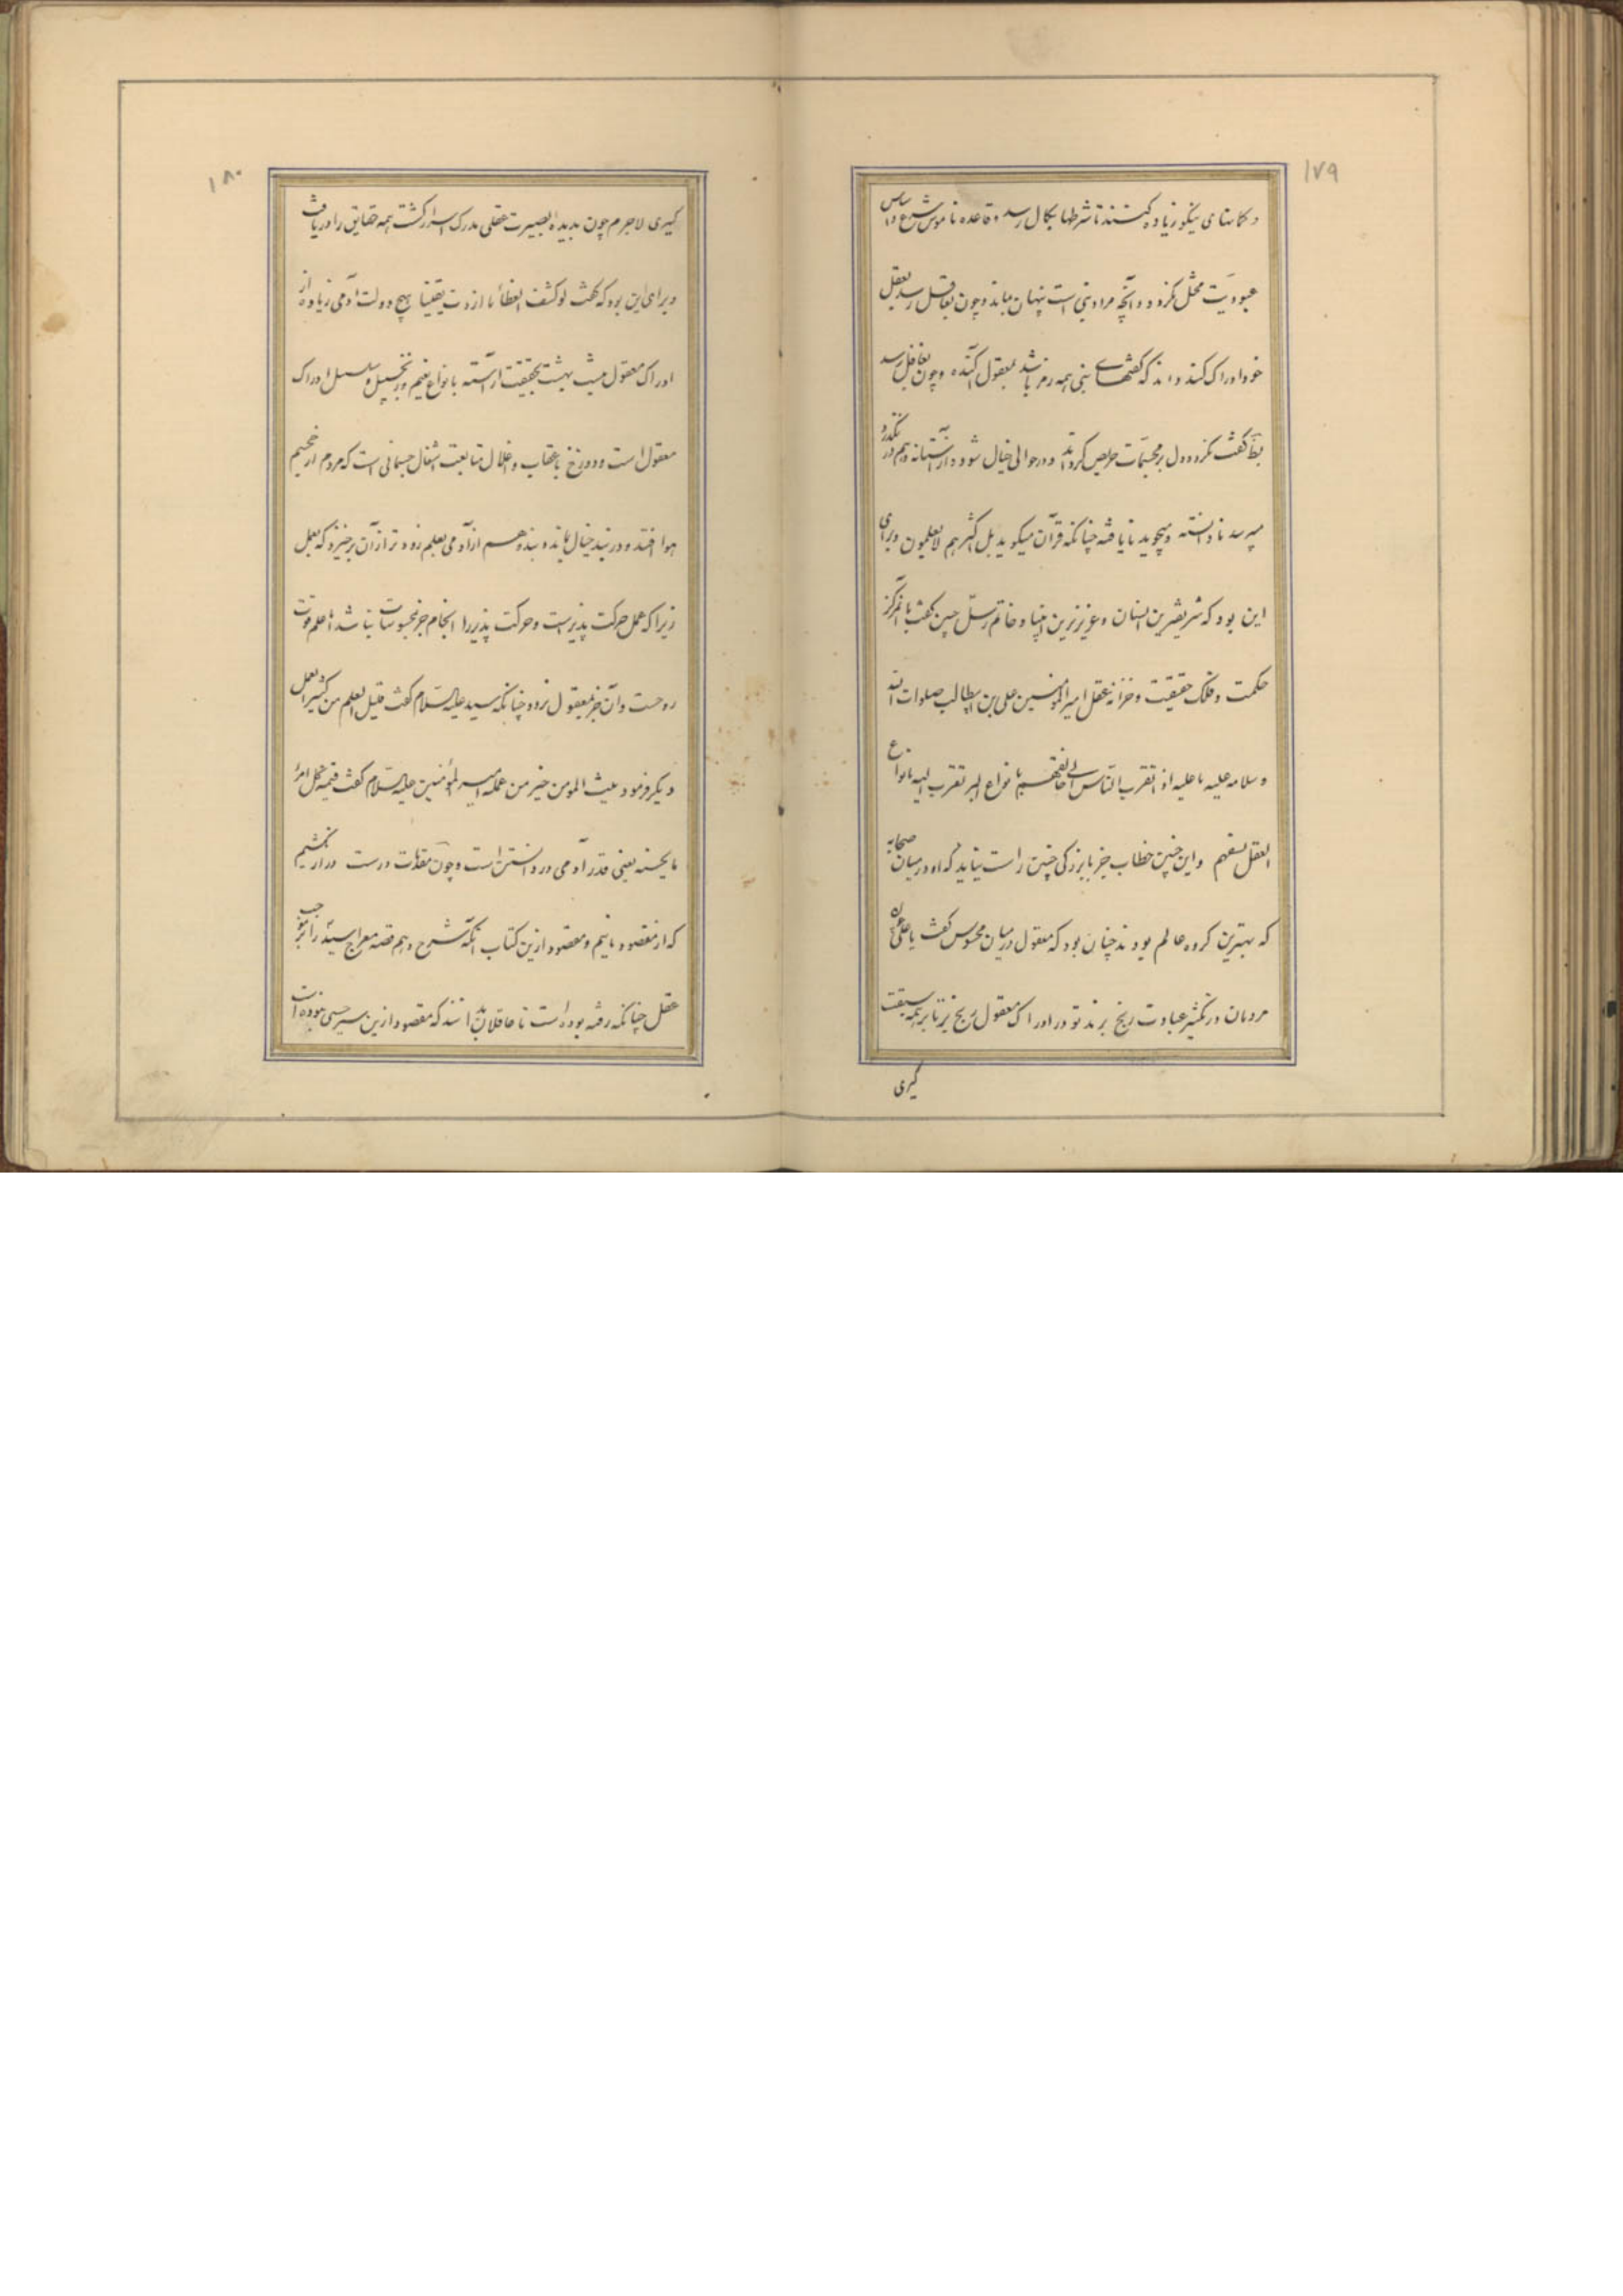 ۱۷۹
و حکایتهای نیکو زیاده کنند تا شرطها بکمال رسد و قاعده ناموس شرع و اساس
عبودیت مختل نگردد و آنچه مراد نبی است پنهان نماند و چون بعاقل رسد بعقل
خود ادراک کند داند که گفتهای نبی همه رمز باشد بمعقول آکنده و چون بغافل رسد
بظاهر گفت نگرد و دل بر مجسمات حریص گرداند و در حوالی خیال شود و از آستانه وهم در نگذرد
میپرسد نادانسته و میجوید نایافته چنانکه قرآن میگوید بل اکثرهم لا یعلمون و برای
این بود که شریفترین انسان و عزیزترین انبیا و خاتم رسل چنین گفت با مرکز
حکمت و فلک حقیقت و خزانه عقل امیرالمؤمنین علی بن ابیطالب صلوات الله
و سلامه علیه یا علی اذا تقرب الناس الی خالقهم بانواع البر تقرب الیه بانواع
العقل تسبقهم و این چنین خطاب جز با بزرگی چنین راست نیاید که او در میان صحابه
که بهترین گروه عالم بودند چنان بود که معقول در میان محسوس گفت یا علی چون
مردمان در تکثیر عبادت رنج برند تو در ادراک معقول رنج بر تا بر همه سبقت
گیری
۱۸۰
گیری لاجرم چون بدیده بصیرت عقلی مدرک اسرار گشت همه حقایق را دریافت
و برای این بود که گفت لو کشف الغطاء ما ازددت یقینا هیچ دولت آدمی زیاده از
ادراک معقول نیست بهشت بحقیقت آراسته بانواع نعیم و زنجبیل و سلسبیل ادراک
معقول است و دوزخ با عقاب و اغلال متابعت اشغال جسمانی است که مردم از جحیم
هوا افتد و در بند خیال بماند و بند وهم از آدمی بعلم زودتر از آن برخیزد که بعمل
زیرا که عمل حرکت پذیر است و حرکت پذیر را انجام جز محسوسات نباشد اما علم قوت
روحست و آن جز بمعقول نرود چنانکه سید علیه السلام گفت قلیل العلم من کثیر العمل
و دیگر فرمود نیت المومن خیر من عمله امیر المؤمنین علیه السلام گفت قیمة کل امرء
ما یحسنه یعنی قدر آدمی در دانستن است و چون مقدمات درست در از کشیم
که از مقصود مانیم و مقصود ازین کتاب آنکه شرح دهم قصه معراج سید را بر موجب
عقل چنانکه رفته بوده است تا عاقلان بدانند که مقصود ازین سیر حسی نبوده است